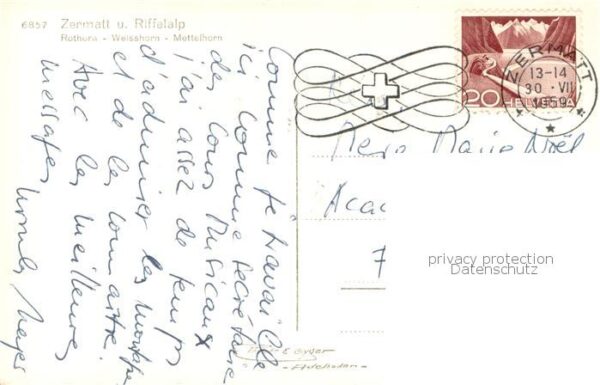 6857 Zermatt u. Riffelalp
Rothorn - Weisshorn - Mettelhorn
Comme je travaille
ici comme secrétaire
des Cours Musicaux
j'ai assez de temps
d'admirer les montagnes
et de les connaître.
Avec les meilleures
messages,
ZERMATT
13-14
30. VII
1959
20 HELVETIA
Marie Noël
Acac
7
privacy protection
Datenschutz